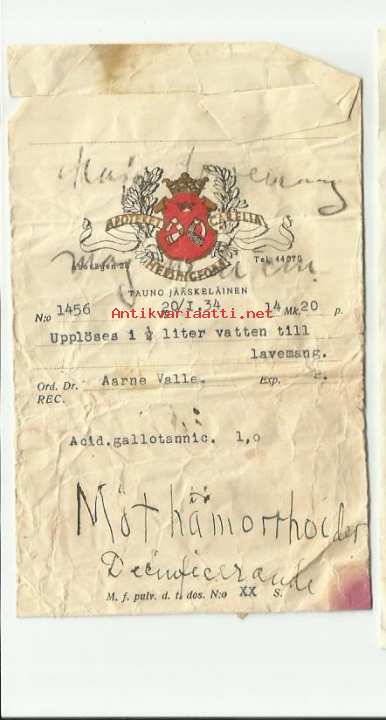 lavemang
APOTEKET CARELIA
HELSINGFORS
Tel. 44070
TAUNO JÄÄSKELÄINEN
Antikvariaatti.net
N:o 1456 20/I.34 14 Mk. 20 p.
Upplöses i ½ liter vatten till
lavemang.
Ord. Dr. Aarne Valle. Exp.
REC.
Acid.gallotannic. 1,0
Mot hämorrhoider
M. f. pulv. d. t. dos. N:o XX S.